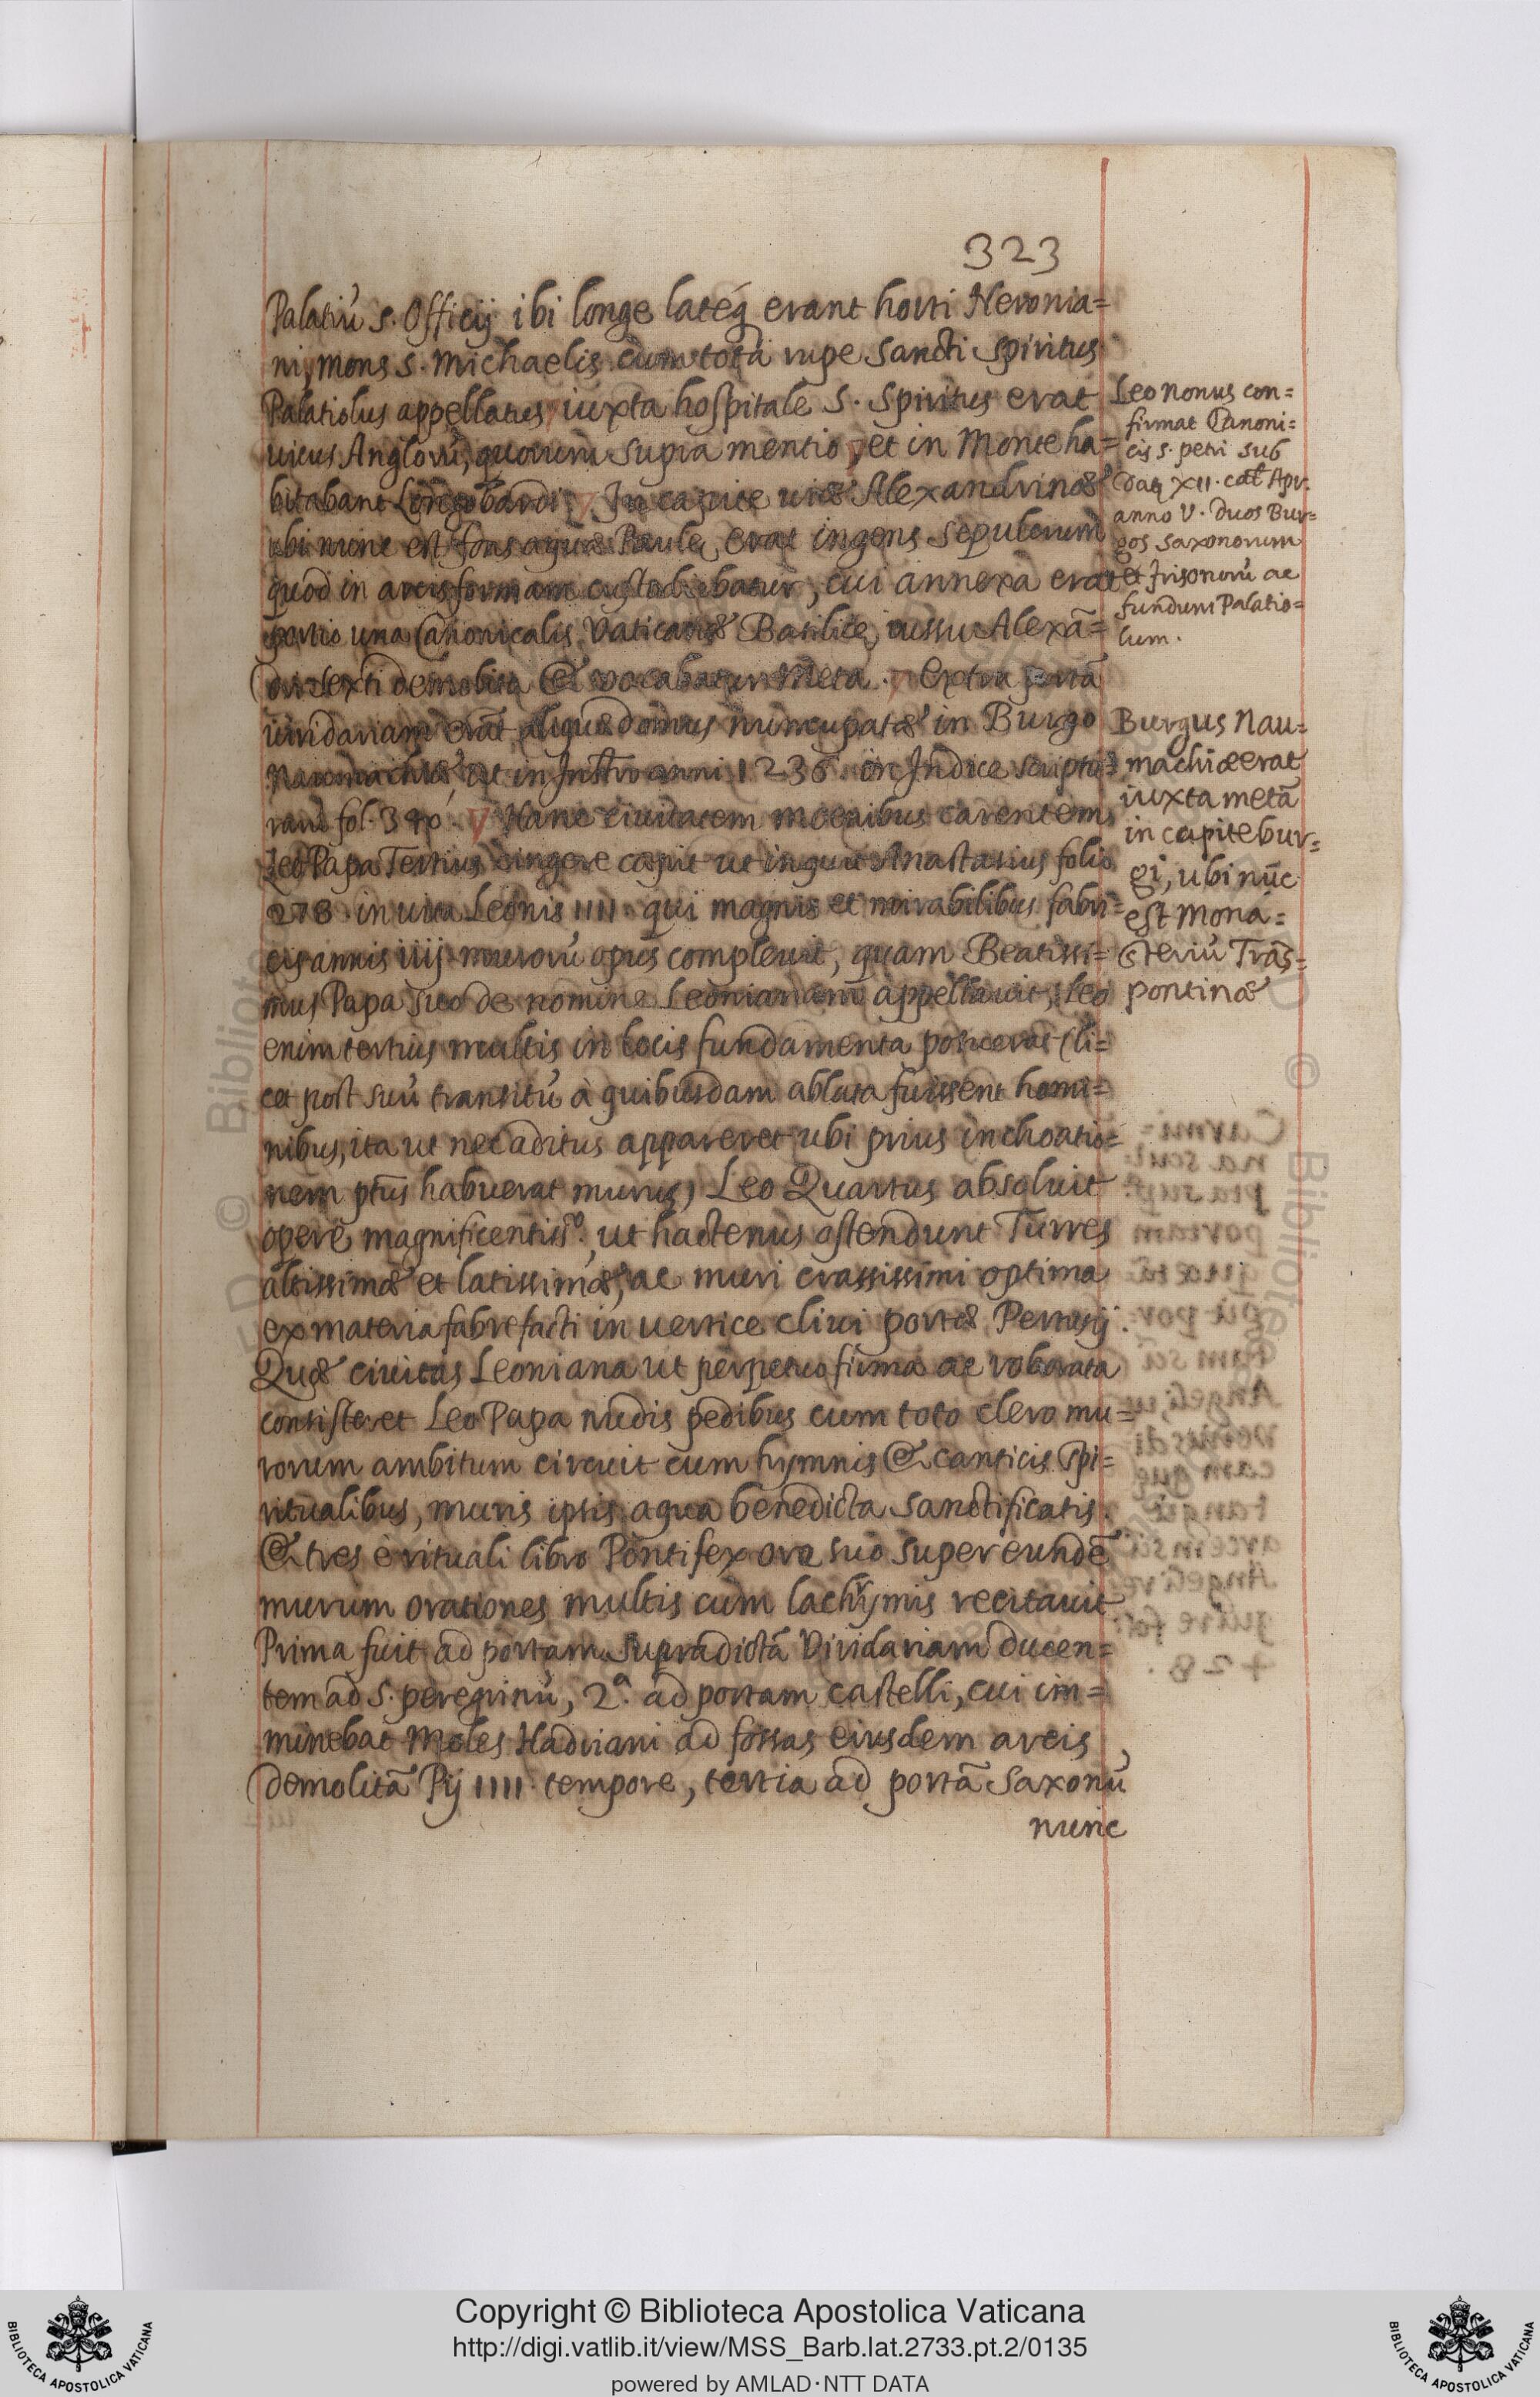 323
Palatiũ S. Officij ibi longe lateq́ erant horti Neronia=
ni, mons S. Michaelis cum tota rupe Sancti Spiritus
Palatiolus appellatus, iuxta hospitale S. Spiritus erat
uicus Anglorũ, quorum supra mentio, et in Monte ha=
bitabant Longobardi. In capite uiæ Alexandrinæ
ubi nunc est fons aquæ Paulę, erat ingens sepulcrum
quod in arcis formam custodiebatur, cui annexa erat
portio una Canonicalis Vaticanæ Basilicę, iussu Alexã=
dri sexti demolita & vocabatur Meta. extra portã
uiridariam erãt aliquæ domus nuncupatæ in Burgo
Naumachiæ, ut in Instro anni 1236. in Indice scriptu=
rarũ fol. 340. Hanc ciuitatem moenibus carentem,
Leo Papa Tertius cingere cœpit ut inquit Anastasius folio
278. in uita Leonis IIII. qui magnis et mirabilibus fabri=
cis annis iiij. murorũ opus compleuit, quam Beatissi=
mus Papa suo de nomine Leonianam appellauit, Leo
enim tertius multis in locis fundamenta posuerat (li=
cet post suũ transitũ à quibusdam ablata fuissent homi=
nibus, ita ut nec aditus appareret ubi prius inchoatio=
nem ptũs habuerat murus) Leo Quartus absoluit
opere magnificentiss.º, ut hactenus ostendunt Turres
altissimæ et latissimæ, ac muri crassissimi optima
ex materia fabrefacti in uertice cliui portæ Pertusij.
Quæ ciuitas Leoniana ut perpetuo firma ac roborata
consisteret Leo Papa nudis pedibus cum toto clero mu=
rorum ambitum circuit cum hymnis & canticis spi=
ritualibus, muris ipsis aqua benedicta sanctificatis.
& tres è rituali libro Pontifex ore suo super eundẽ
murum orationes multis cum lachrymis recitauit
Prima fuit ad portam supradictã Viridariam ducen=
tem ad S. peregrinũ, 2.ª ad portam castelli, cui im=
minebat Moles Hadriani ad fossas eiusdem arcis
demolitã Pij IIII. tempore, tertia ad portã Saxonũ
nunc
Leo nonus con=
firmat Canoni=
cis S. petri sub
XII. cal. Apr.
anno V. duos Bur=
gos Saxonorum
et Frisonorũ ac
fundum Palatio=
lum.
Burgus Nau=
machiæ erat
iuxta metã
in capite bur=
gi, ubi nũc
est Mona=
steriũ Trãs=
pontinæ
Copyright © Biblioteca Apostolica Vaticana
http://digi.vatlib.it/view/MSS_Barb.lat.2733.pt.2/0135
powered by AMLAD·NTT DATA
BIBLIOTECA APOSTOLICA VATICANA
BIBLIOTECA APOSTOLICA VATICANA